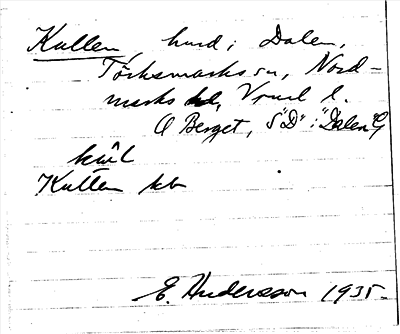 Kullen, hmd i Dalen,
Törksmarks sn, Nord-
marks hd, Vrml l.
O Berget, S "D" i "Dalen" G
kúl
Kullen kb
E. Andersson 1935.